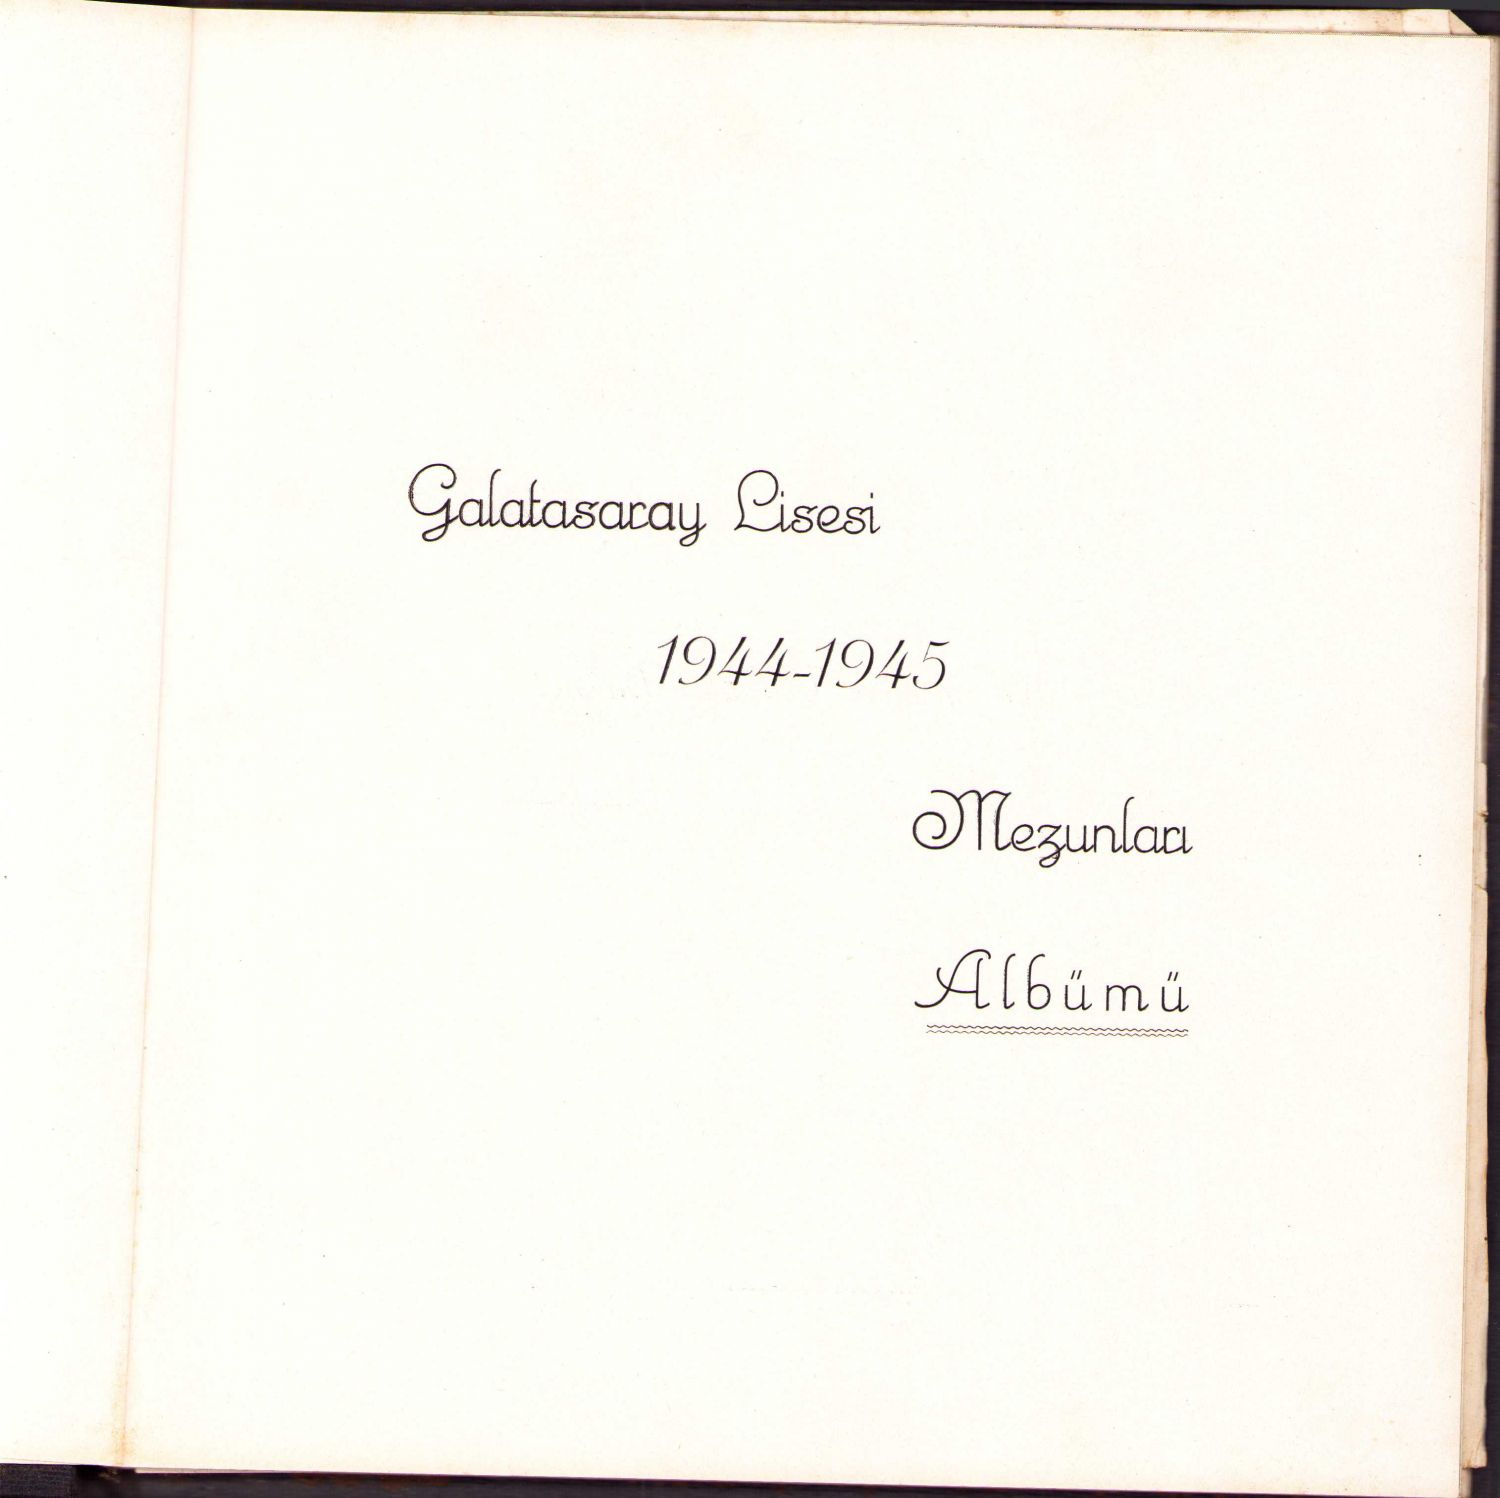 Galatasaray Lisesi
1944-1945
Mezunları
Albümü